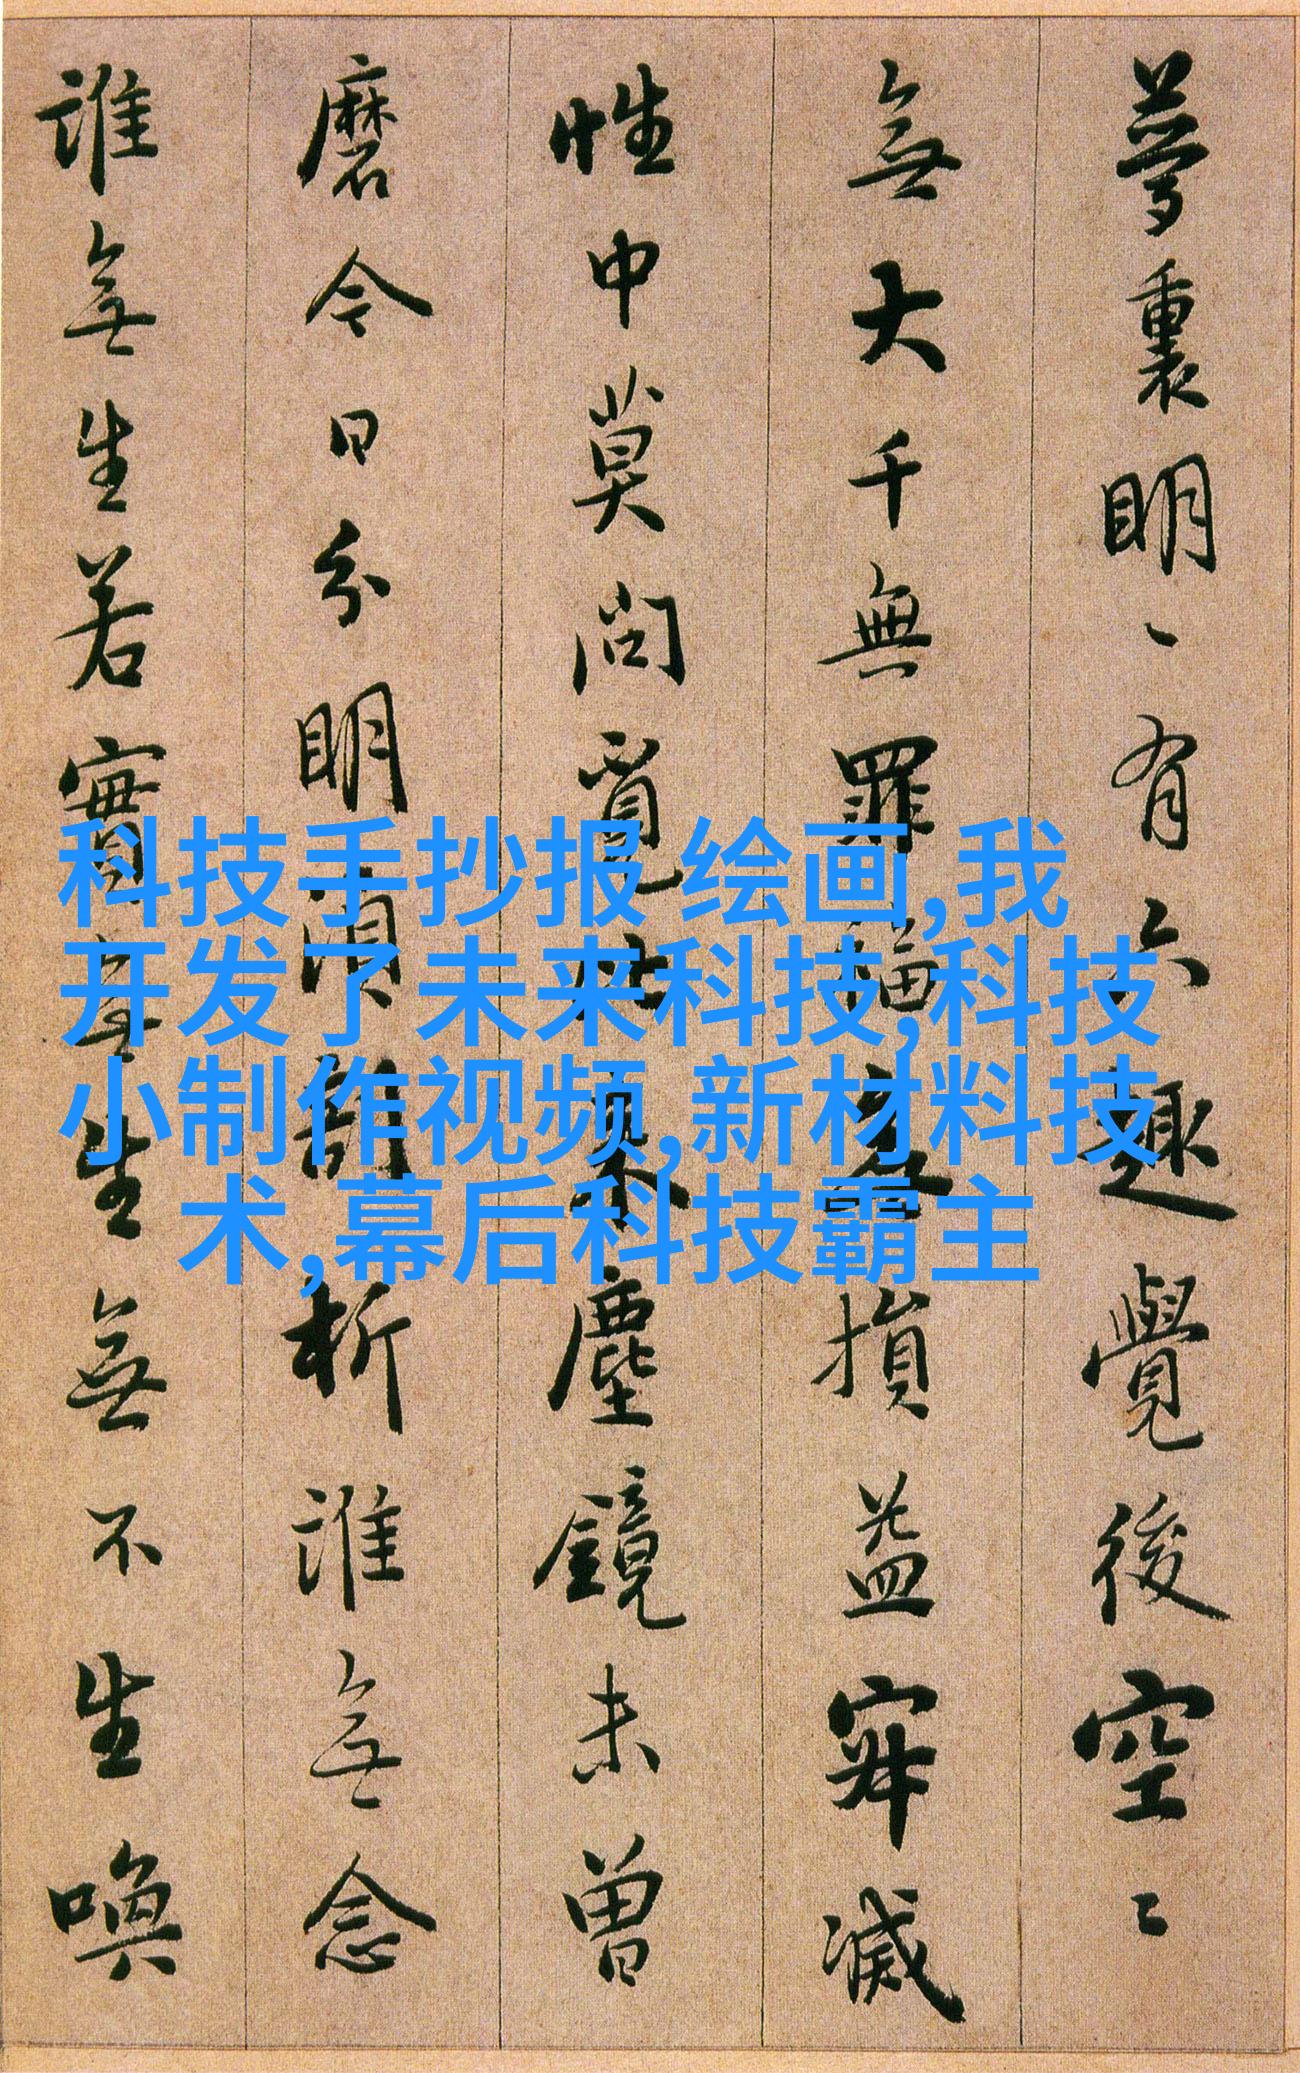 夢裏明〻有六趣覺後空〻
無大千無罪福無損益寂滅
性中莫問覓比來塵鏡未曾
磨今日分明須剖析誰無念
誰無生若實無生無不生喚
科技手抄报 绘画,我
开发了未来科技,科技
小制作视频,新材料技
术,幕后科技霸主